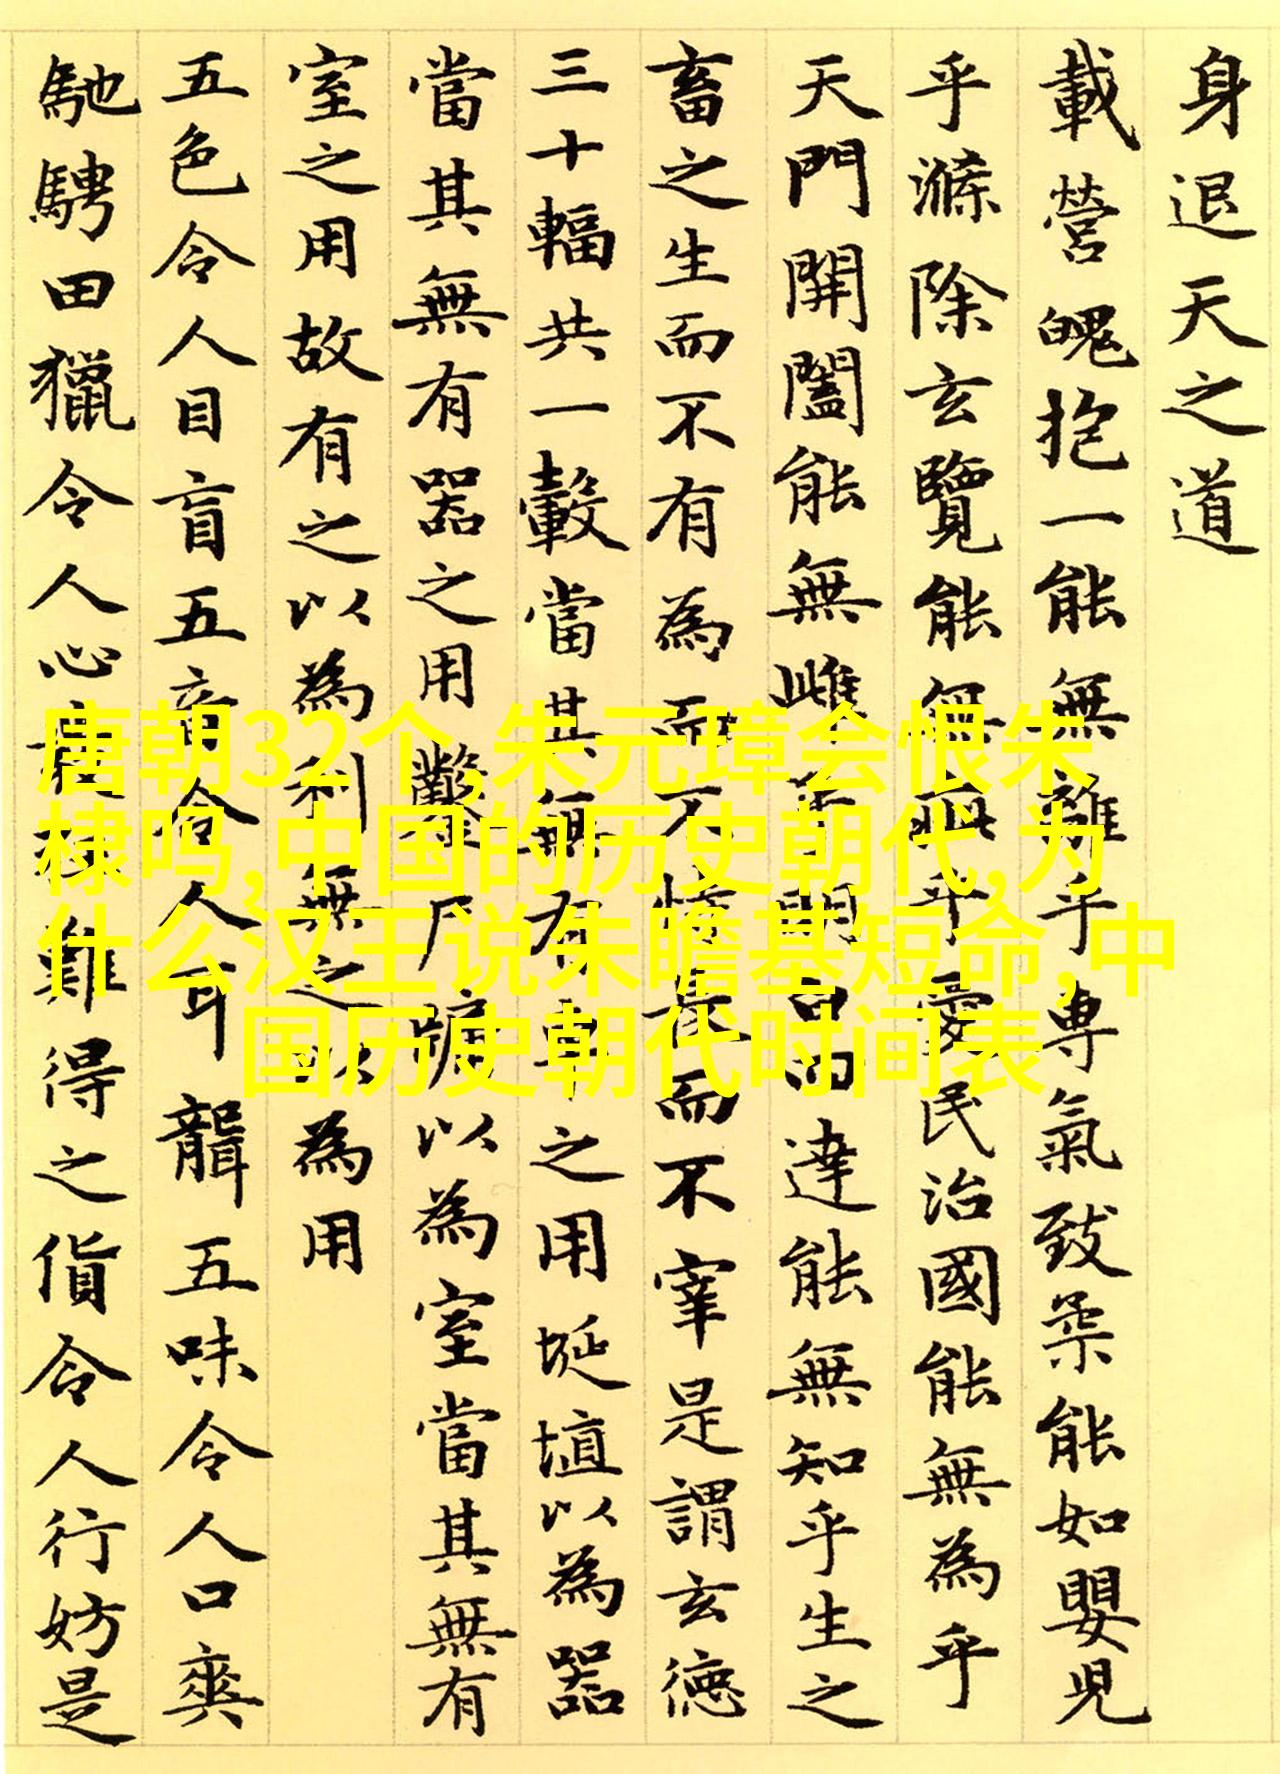 身退天之道
載營魄抱一能無離乎專氣致柔能如嬰兒
乎滌除玄覽能無疵乎愛民治國能無為乎
天門開闔能無雌乎明白四達能無知乎生之
畜之生而不有為而不恃長而不宰是謂玄德
三十輻共一轂當其無有車之用埏埴以為器
當其無有器之用鑿戶牖以為室當其無有
室之用故有之以為利無之以為用
五色令人目盲五音令人耳聾五味令人口爽
馳騁田獵令人心發狂難得之貨令人行妨是
唐朝32个,朱元璋会恨朱
棣吗,中国的历史朝代,为
什么汉王说朱瞻基短命,中
国历史朝代时间表